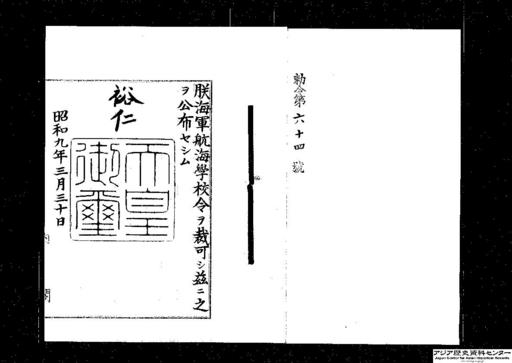 勅令第六十四號
朕海軍航海學校令ヲ裁可シ茲ニ之
ヲ公布セシム
裕仁
天皇御璽
昭和九年三月三十日
内閣
アジア歴史資料センター
Japan Center for Asian Historical Records